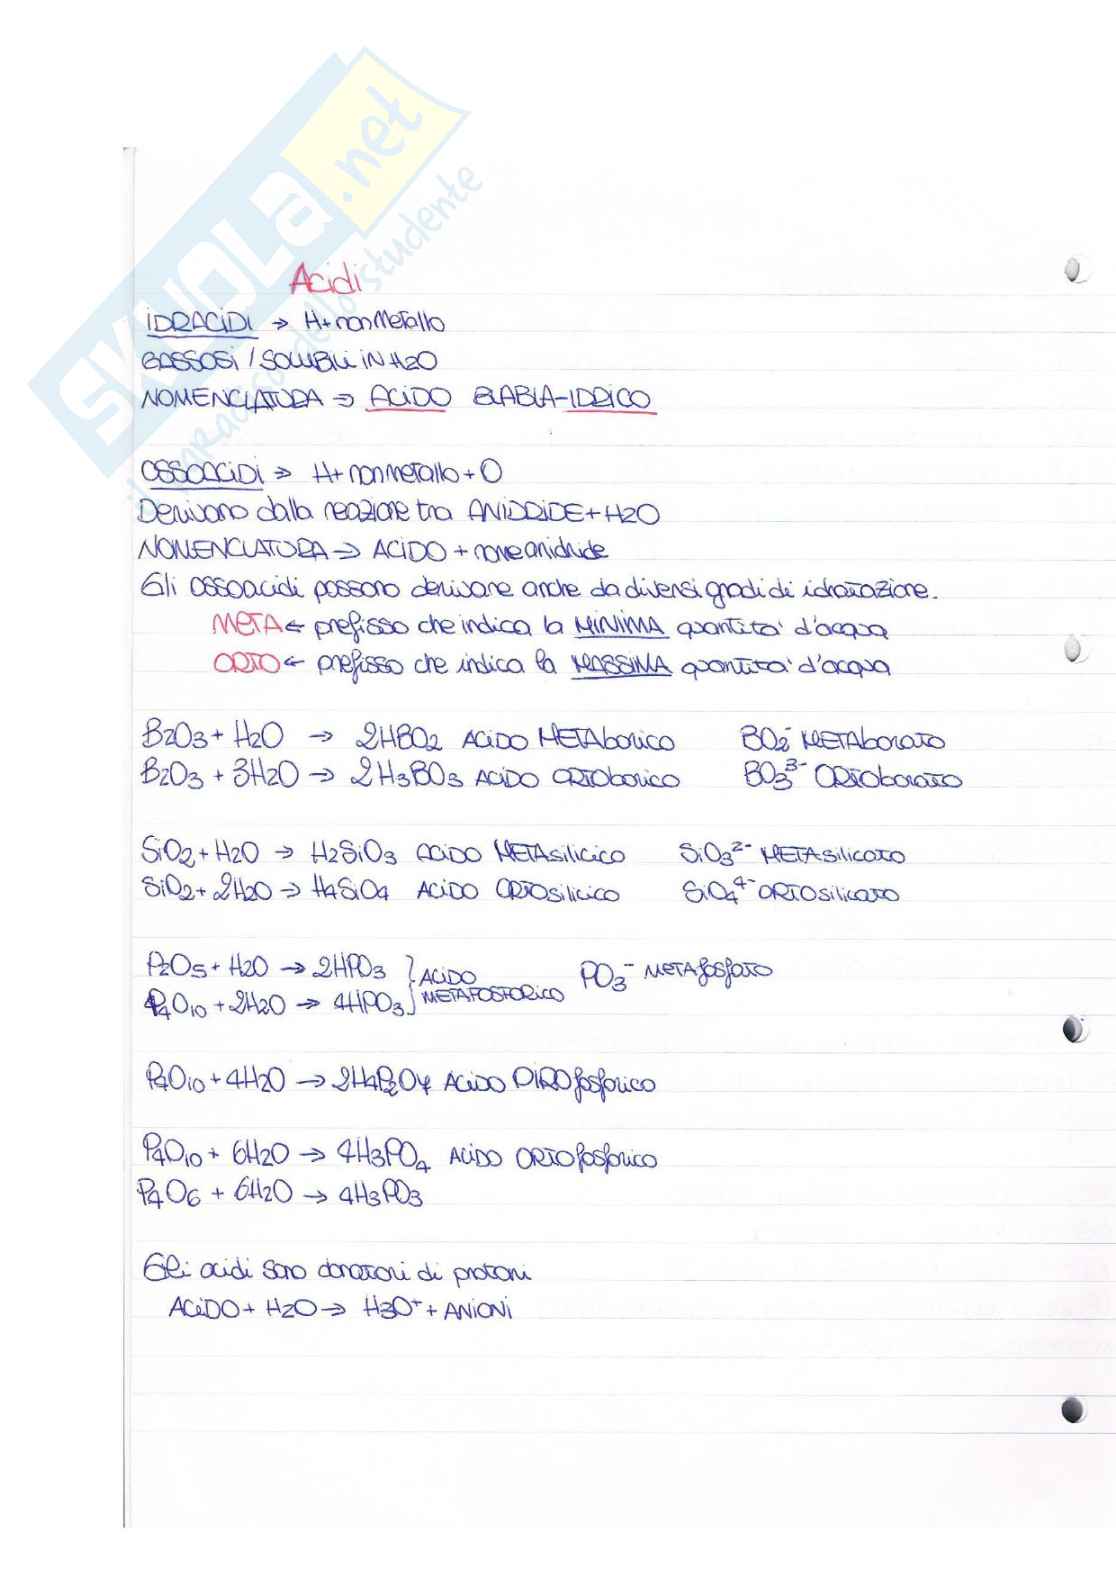 SKUOLA.net
il paradiso dello studente
Acidi
IDRACIDI → H+ non Metallo
GASSOSI / SOLUBILI IN H2O
NOMENCLATURA → ACIDO BLABLA-IDRICO
OSSOACIDI → H+ non metallo + O
Derivano dalla reazione tra ANIDRIDE + H2O
NOMENCLATURA → ACIDO + nome anidride
Gli ossoacidi possono derivare anche da diversi gradi di idratazione.
META ← prefisso che indica la MINIMA quantita' d'acqua
ORTO ← prefisso che indica la MASSIMA quantita' d'acqua
B2O3 + H2O → 2HBO2 ACIDO METAborico BO2⁻ METAborato
B2O3 + 3H2O → 2H3BO3 ACIDO ORTOborico BO3³⁻ ORTOborato
SiO2 + H2O → H2SiO3 ACIDO METAsilicico SiO3²⁻ METAsilicato
SiO2 + 2H2O → H4SiO4 ACIDO ORTOsilicico SiO4⁴⁻ ORTOsilicato
P2O5 + H2O → 2HPO3 } ACIDO METAFOSFORICO PO3⁻ METAfosfato
P4O10 + 2H2O → 4HPO3
P4O10 + 4H2O → 2H4P2O7 ACIDO PIROfosforico
P4O10 + 6H2O → 4H3PO4 ACIDO ORTOfosforico
P4O6 + 6H2O → 4H3PO3
Gli acidi sono donatori di protoni
ACIDO + H2O → H3O⁺ + ANIONI